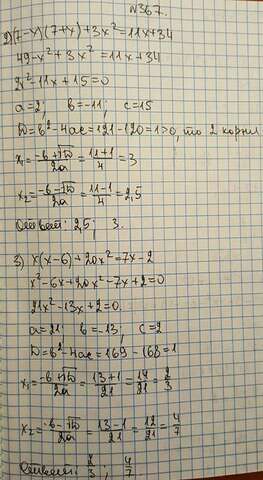 №367.
2) (7-x)(7+x)+3x²=11x+34
49-x²+3x²=11x+34
2x²-11x+15=0
a=2; b=-11; c=15
D=b²-4ac=121-120=1>0, то 2 корня
x₁=(-b+√D)/2a=(11+1)/4=3
x₂=(-b-√D)/2a=(11-1)/4=2,5
Ответ: 2,5; 3.
3) x(x-6)+20x²=7x-2
x²-6x+20x²-7x+2=0
21x²-13x+2=0.
a=21 b=-13, c=2
D=b²-4ac=169-168=1
x₁=(-b+√D)/2a=(13+1)/21=14/21=2/3
x₂=(-b-√D)/2a=(13-1)/21=12/21=4/7
Ответ: 2/3; 4/7